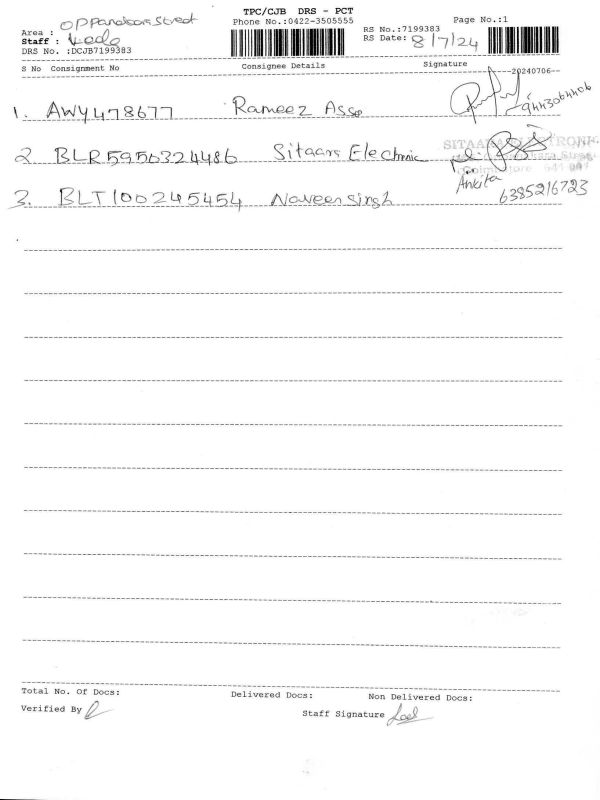 TPC/CJB DRS - PCT
Phone No.:0422-3505555
Page No.:1
Area : Oppanakara Street
RS No.:7199383
Staff :
RS Date: 8/7/24
DRS No. :DCJB7199383
S No Consignment No Consignee Details Signature
--20240706--
1. AWY478677 Rameez Asso 9443064406
SITAARS ELECTRONIC
2 BLR5950324486 Sitaars Electronic
Street
Coimbatore 641 001
Ankita
3. BLT100245454 Naveersingh 6385216723
Total No. Of Docs: Delivered Docs: Non Delivered Docs:
Verified By
Staff Signature